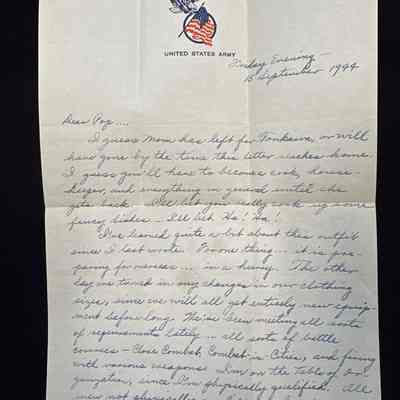 UNITED STATES ARMY
Friday Evening -
15 September 1944
Dear Pop....
I guess Mom has left for Tonkawa, or will
have gone by the time this letter reaches home.
I guess you'll have to become cook, house-
keeper, and everything in general until she
gets back. I'll bet you really cook up some
fancy dishes - I'll bet. Ha! Ha!
I've learned quite a bit about this outfit
since I last wrote. For one thing... it is pre-
paring for overseas... in a hurry. The other
day we turned in any changes in our clothing
sizes, since we will all get entirely new equip-
ment before long. We've been meeting all sorts
of requirements lately... all sorts of battle
courses - Close Combat, Combat in Cities, and firing
with various weapons. I'm on the Table of Or-
ganization, since I'm physically qualified. All
men not physically